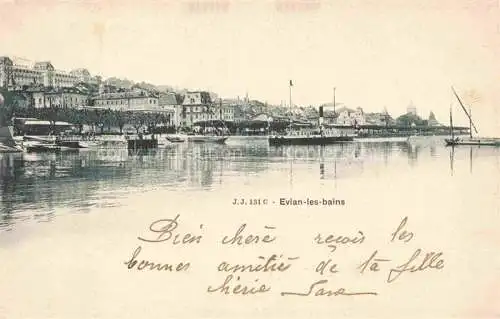 J.J. 131 C - Evian-les-bains
Bien chère reçois les
bonnes amitiés de ta fille
chérie Sara